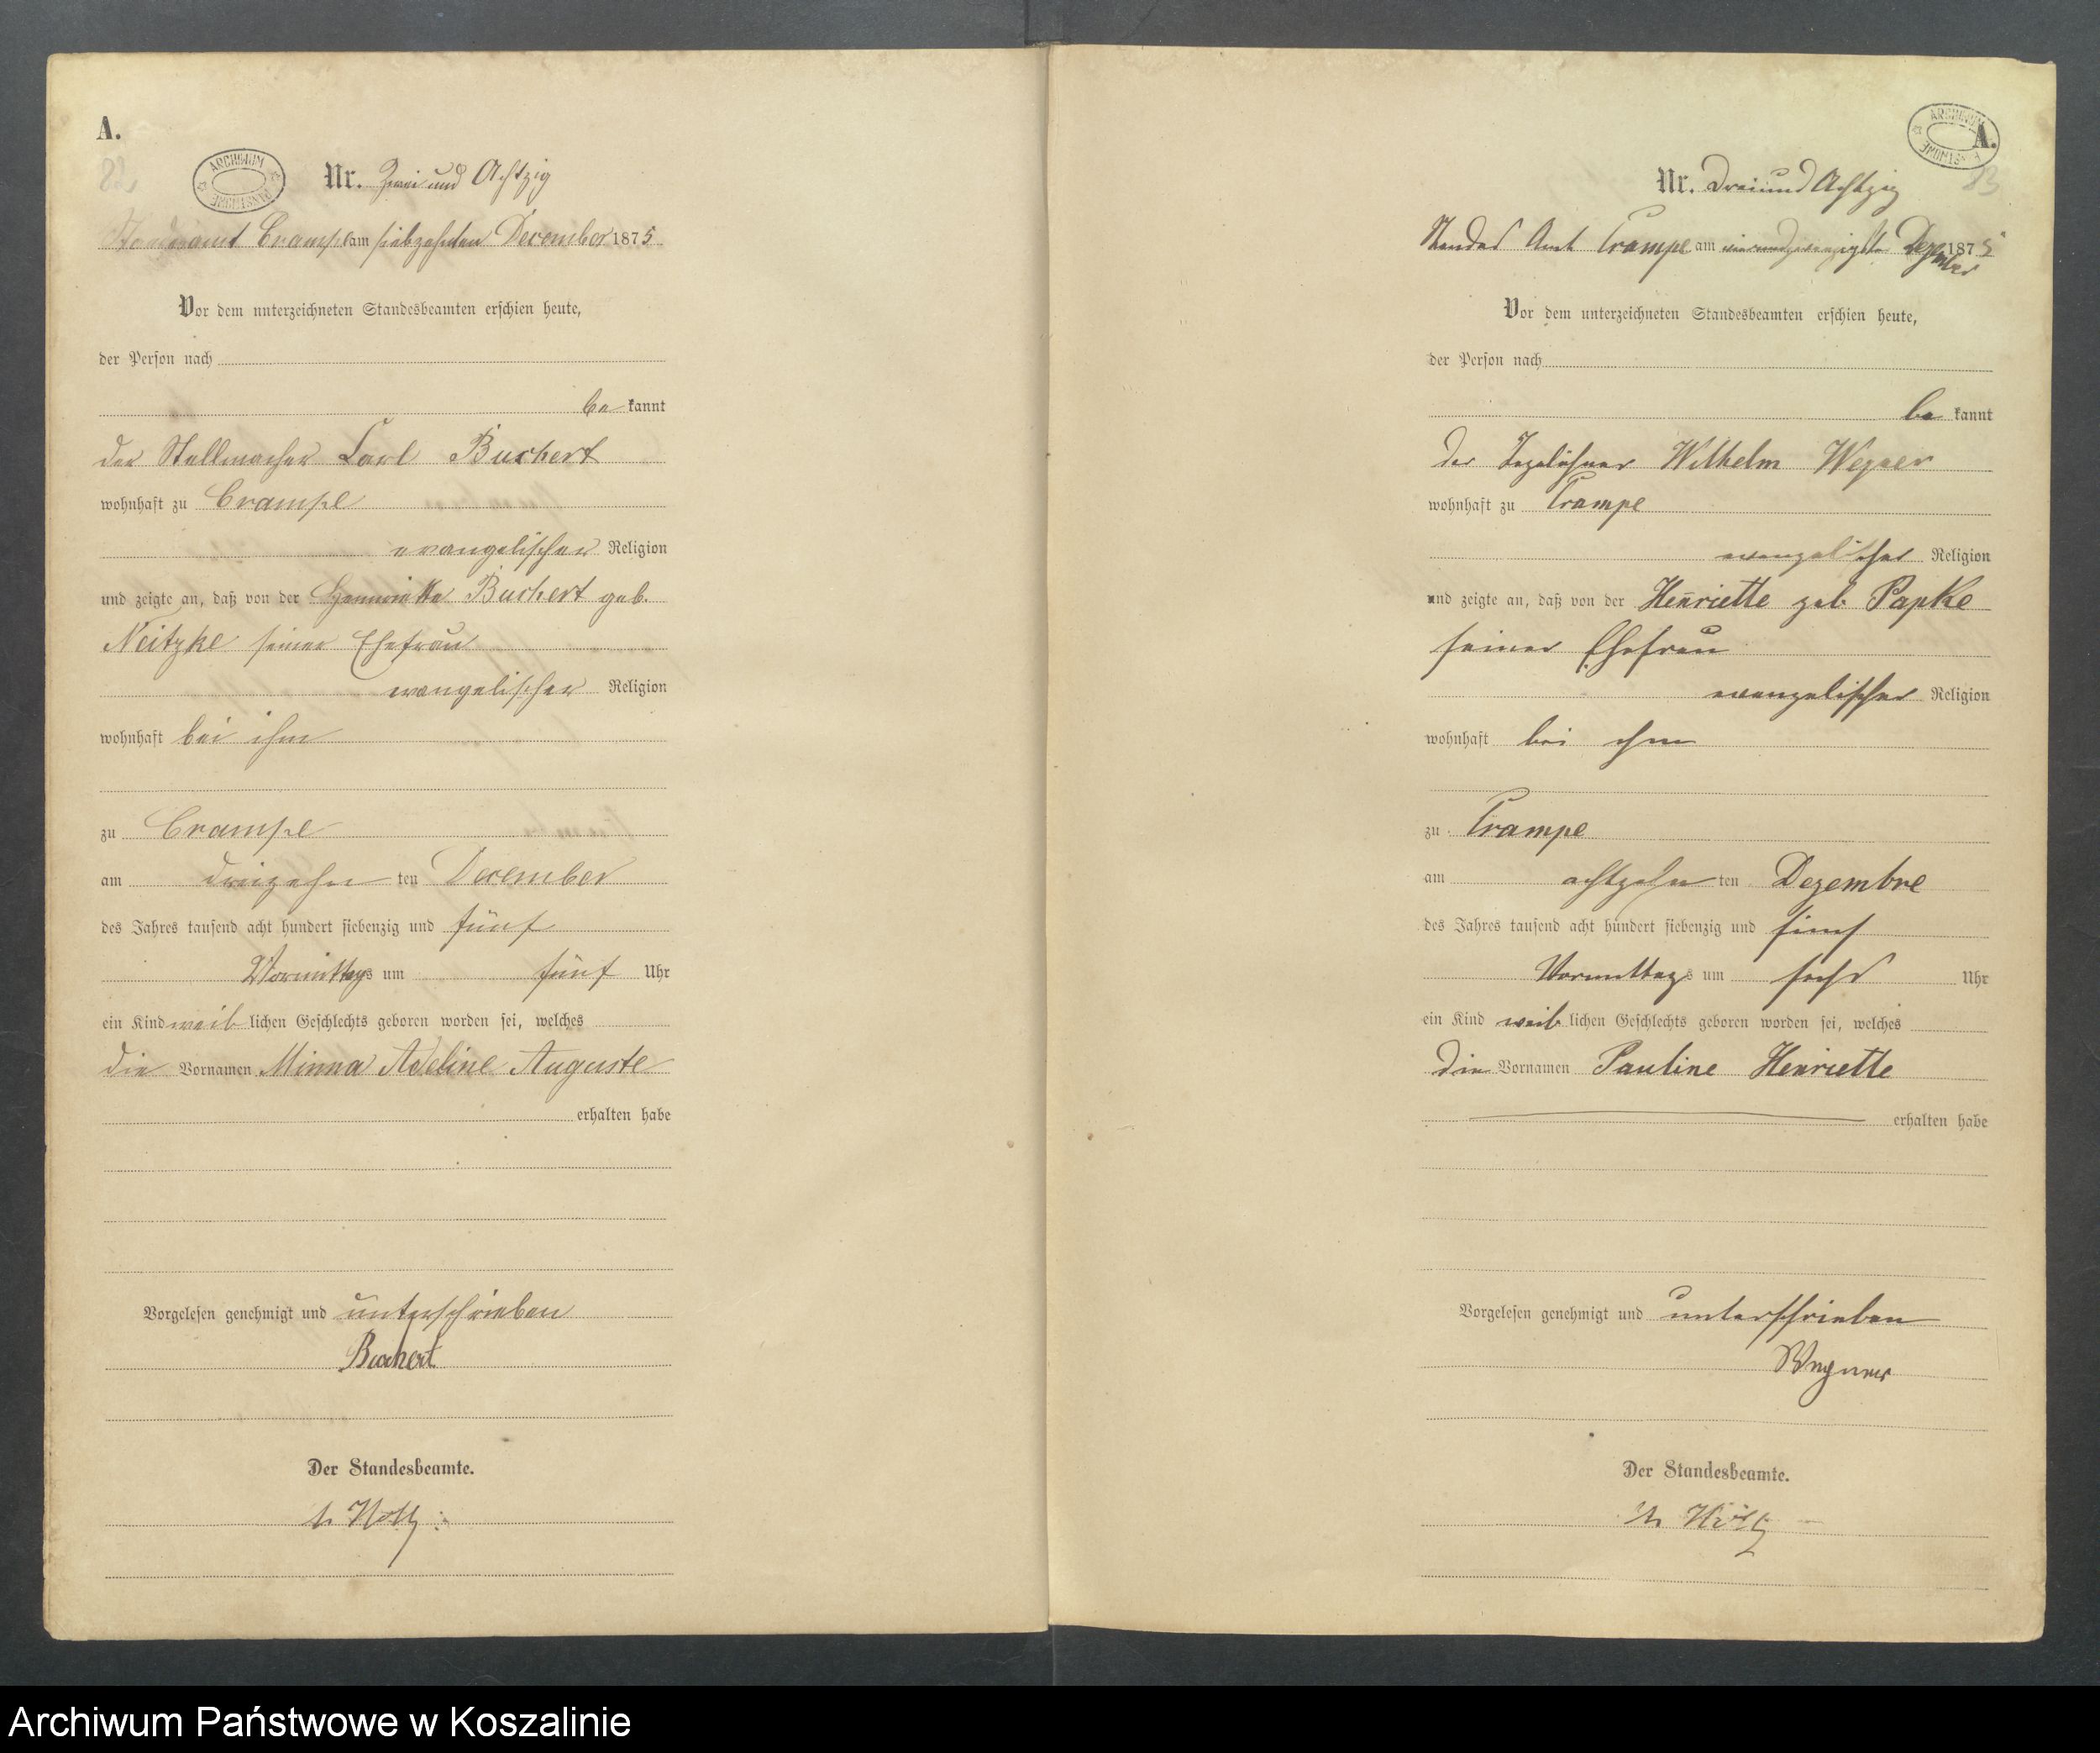 A.
82
ARCHIWUM
Nr. Zwei und Achtzig
Standesamt Crampe am siebzehnten December 1875
Vor dem unterzeichneten Standesbeamten erschien heute,
der Person nach
be kannt
der Stellmacher Carl Buchert
wohnhaft zu Crampe
evangelischer Religion
und zeigte an, daß von der Henriette Buchert geb.
Neitzke seiner Ehefrau
evangelischer Religion
wohnhaft bei ihm
zu Crampe
am dreizehn ten December
des Jahres tausend acht hundert siebenzig und fünf
Vormittags um fünf Uhr
ein Kind weiblichen Geschlechts geboren worden sei, welches
die Vornamen Minna Adeline Auguste
erhalten habe
Vorgelesen genehmigt und unterschrieben
Buchert
Der Standesbeamte.
A.
83
ARCHIWUM
Nr. Drei und Achtzig
Standes Amt Crampe am einundzwanzigsten Dezember 1875
Vor dem unterzeichneten Standesbeamten erschien heute,
der Person nach
be kannt
der Tagelöhner Wilhelm Wegner
wohnhaft zu Crampe
evangelischer Religion
und zeigte an, daß von der Henriette geb. Papke
seiner Ehefrau
evangelischer Religion
wohnhaft bei ihm
zu Crampe
am achtzehn ten Dezembre
des Jahres tausend acht hundert siebenzig und fünf
Vormittags um sechs Uhr
ein Kind weiblichen Geschlechts geboren worden sei, welches
die Vornamen Pauline Henriette
erhalten habe
Vorgelesen genehmigt und unterschrieben
Wegner
Der Standesbeamte.
Archiwum Państwowe w Koszalinie